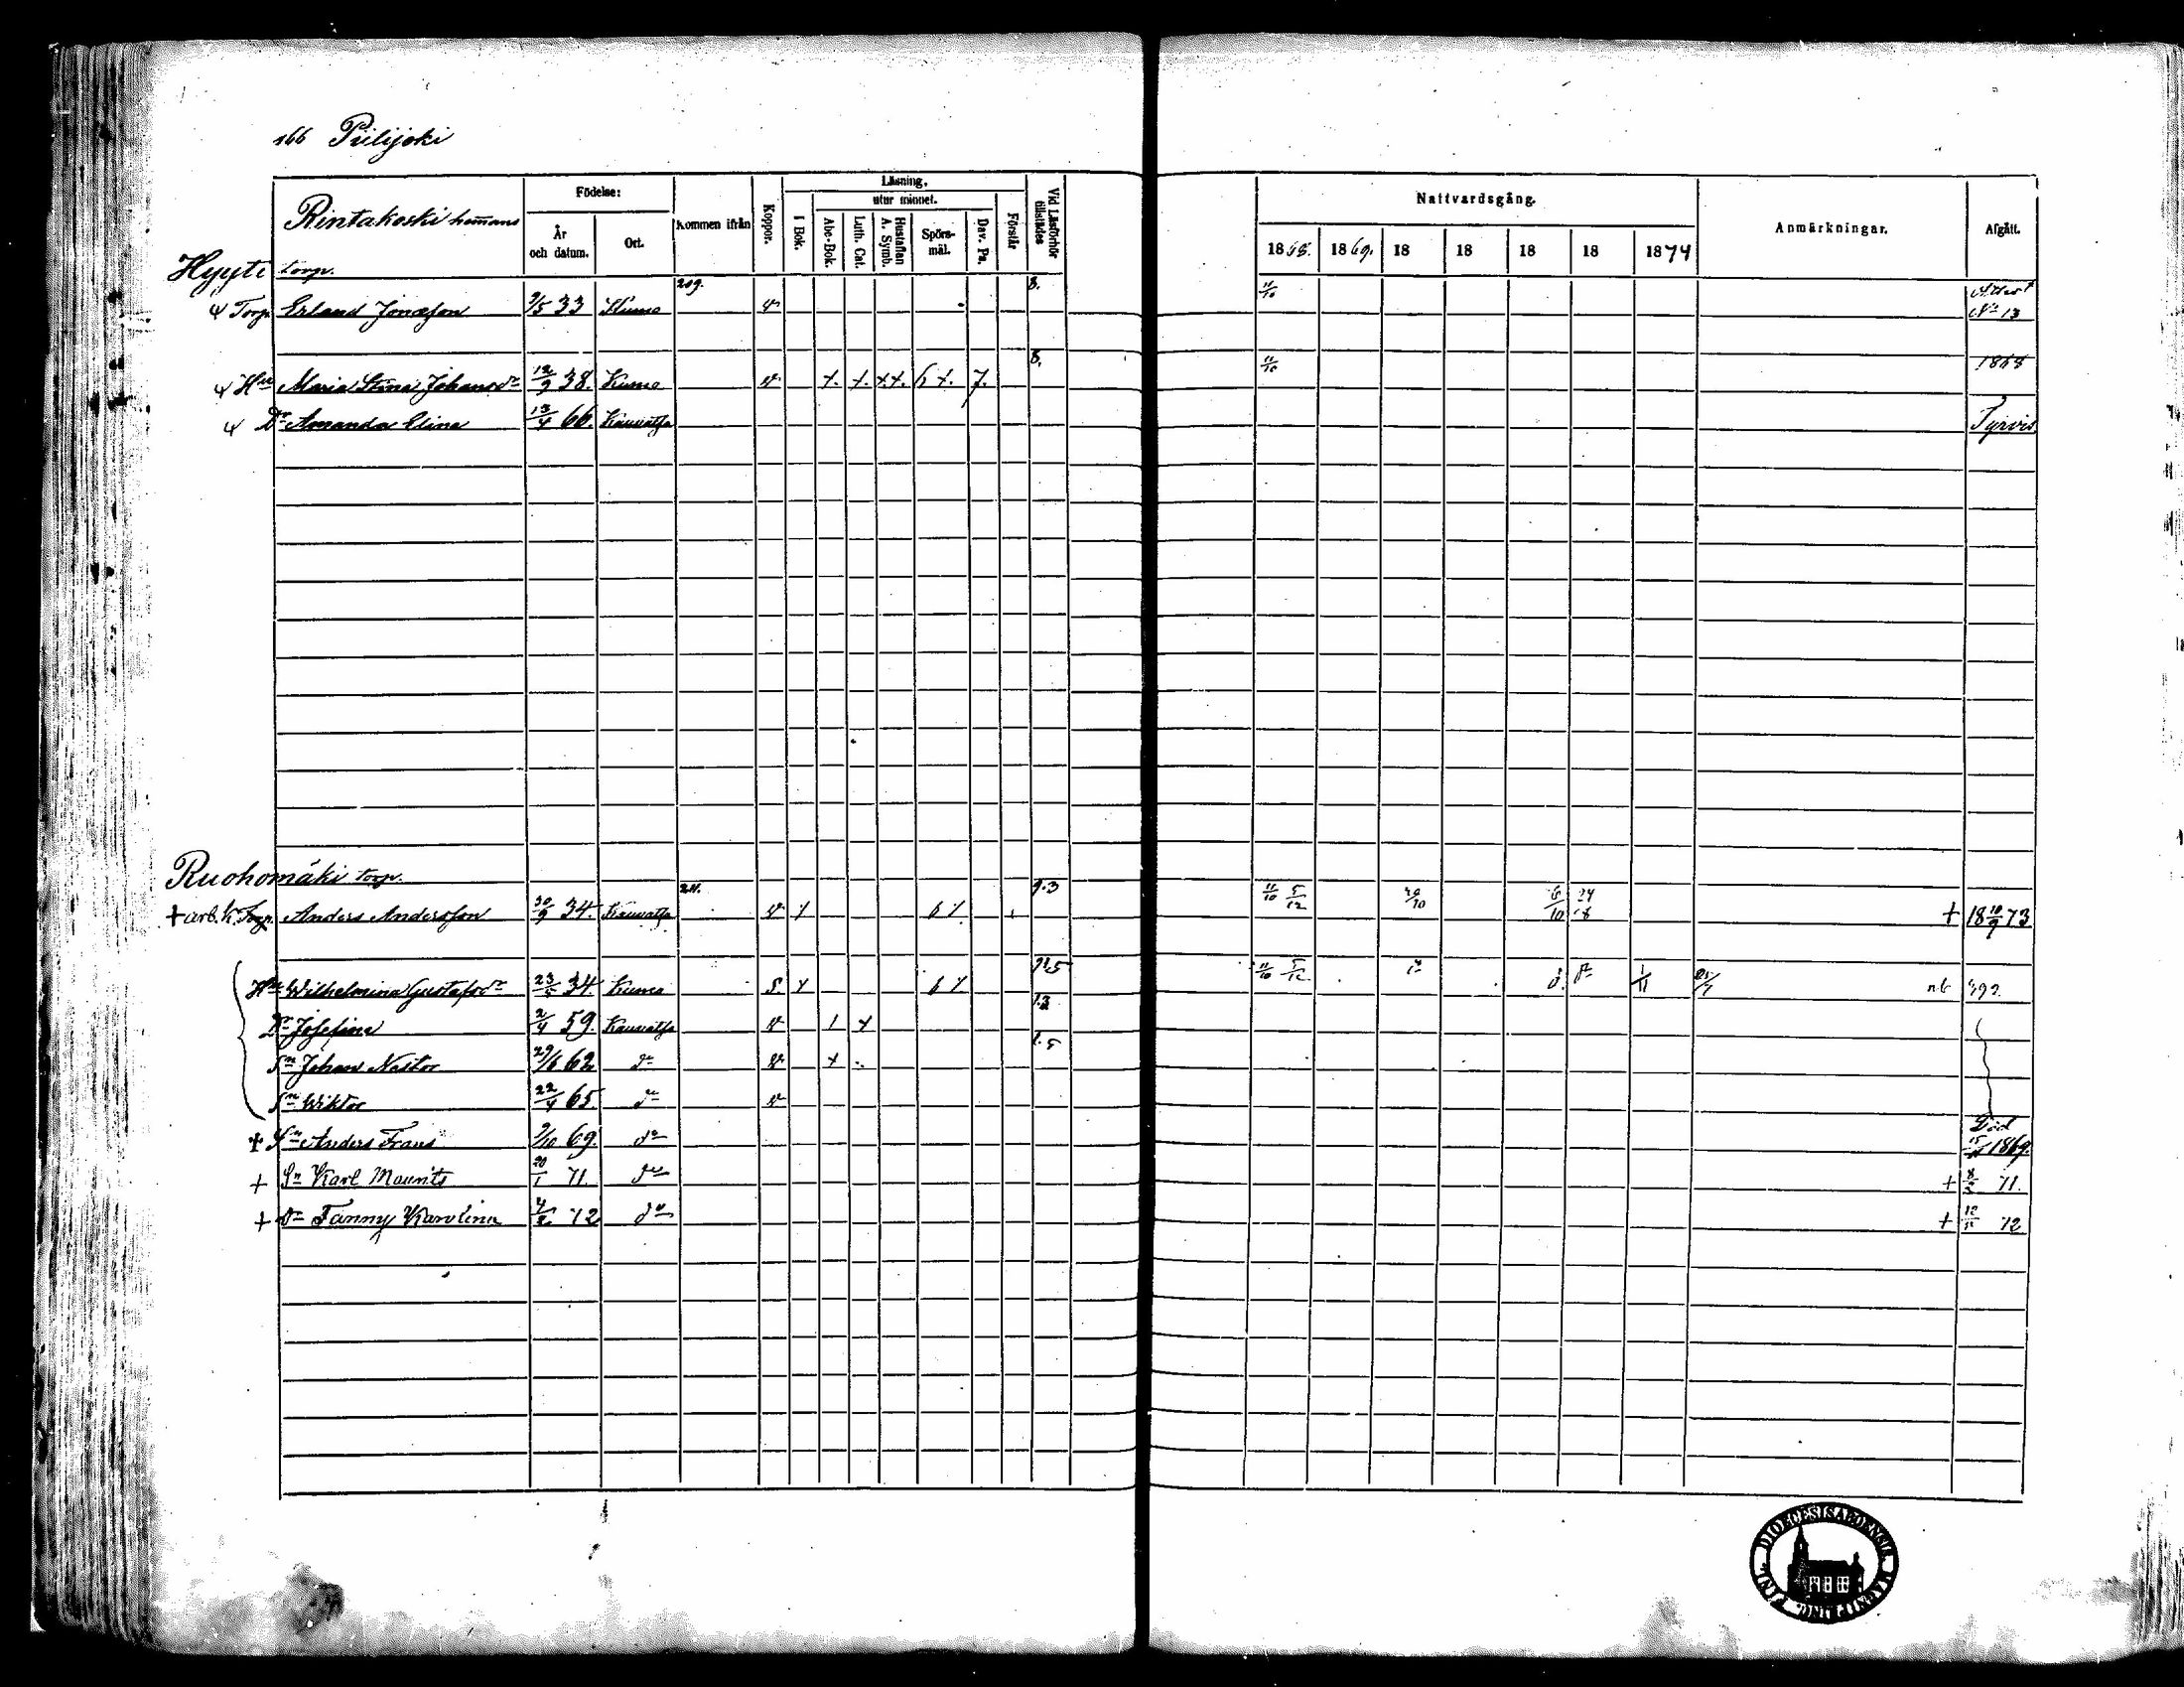 166 Piilijoki
Rintakoski hem̄ans
Födelse:
År
och datum.
Ort.
Kommen ifrån
Koppor.
Läsning.
utur minnet.
I Bok.
Abc-Bok.
Luth. Cat.
Hustaflan
A. Symb.
Spörs-
mål.
Dav. Ps.
Förstår
Vid Läsförhör
tillstädes
Nattvardsgång.
1868. 1869. 18 18 18 18 1874
Anmärkningar.
Afgått.
Hyyti torp.
Torp. Erland Jonasson 9/5 33 Kumo 209. v 8. 11/10 Attest No 13
Hu Maria Stina Johansdr 12/9 38. Kumo v. x. x. x.x. 6 x. 7. 8. 11/10 1868
Dr Amanda Elina 13/4 66. Kauvatsa Tyrvis
Ruohomäki torp.
+ arb. k. Torp. Anders Andersson 30/9 34. Kauvatsa 211. v 6 9.3 11/10 5/12 + 18 10/9 73
Hu Wilhelmina Gustafsdr 23/5 34. Kumo S. 6 11/10 5/12 1/11
Dr Josefina 2/4 59. Kauvatsa v 1.3
Sn Johan Nestor 29/6 62 do v 1.5
Sn Wiktor 22/4 65. do v
+ Sn Anders Frans 9/10 69. do Död 1869.
+ Sn Karl Maurits 20/1 71. do + 71.
+ Dr Fanny Karolina 72 do + 72
DIOECESIS ABOENSIS MAGNI PRINC. FINL.